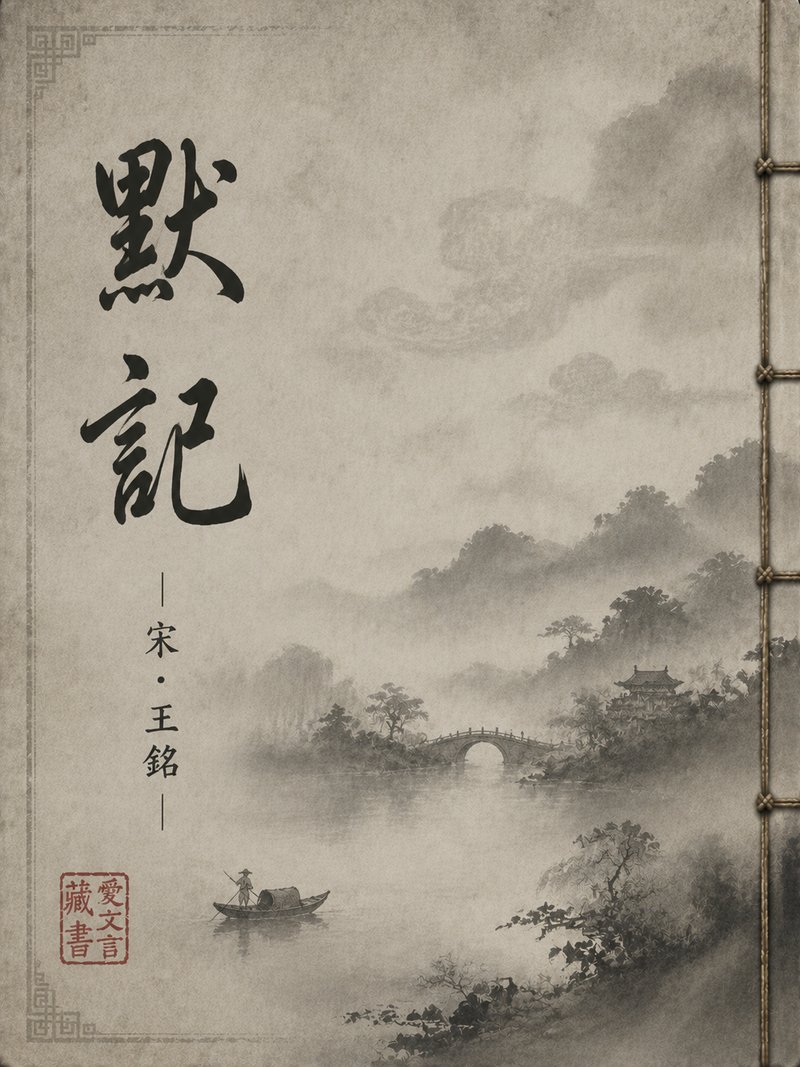 默記
宋·王銘
愛文言
藏書